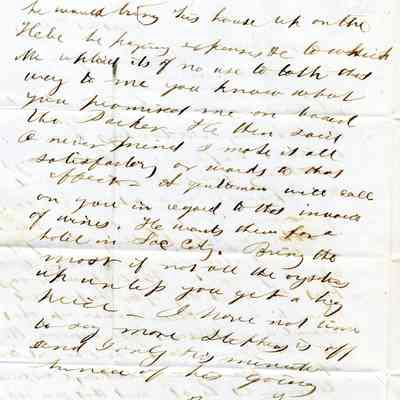 he would bring his house up on the
Hebe he paying expenses &c to which
Mc replied its of no use to talk that
way to me you know what
you promised me on board
the Parker. He then said
O never mind I make it all
satisfactory or words to that
effect. A gentleman will call
on you in regard to that invoice
of wines. He wants them for a
hotel in Sac City. Bring the
most if not all the oysters
up unless you get a big
price – I have not time
to say more Stephens is off
and I only this minute
of his going